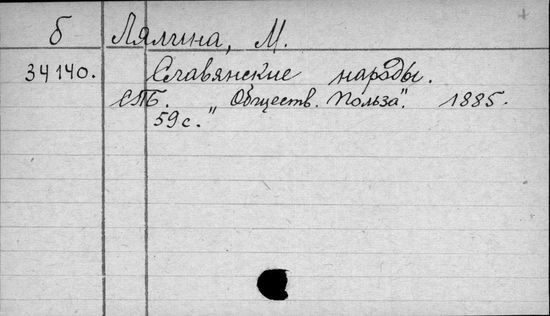 б Лялина, М.
34140. Славянские народы.
СПБ. „Обществ. Польза". 1885.
59 с.